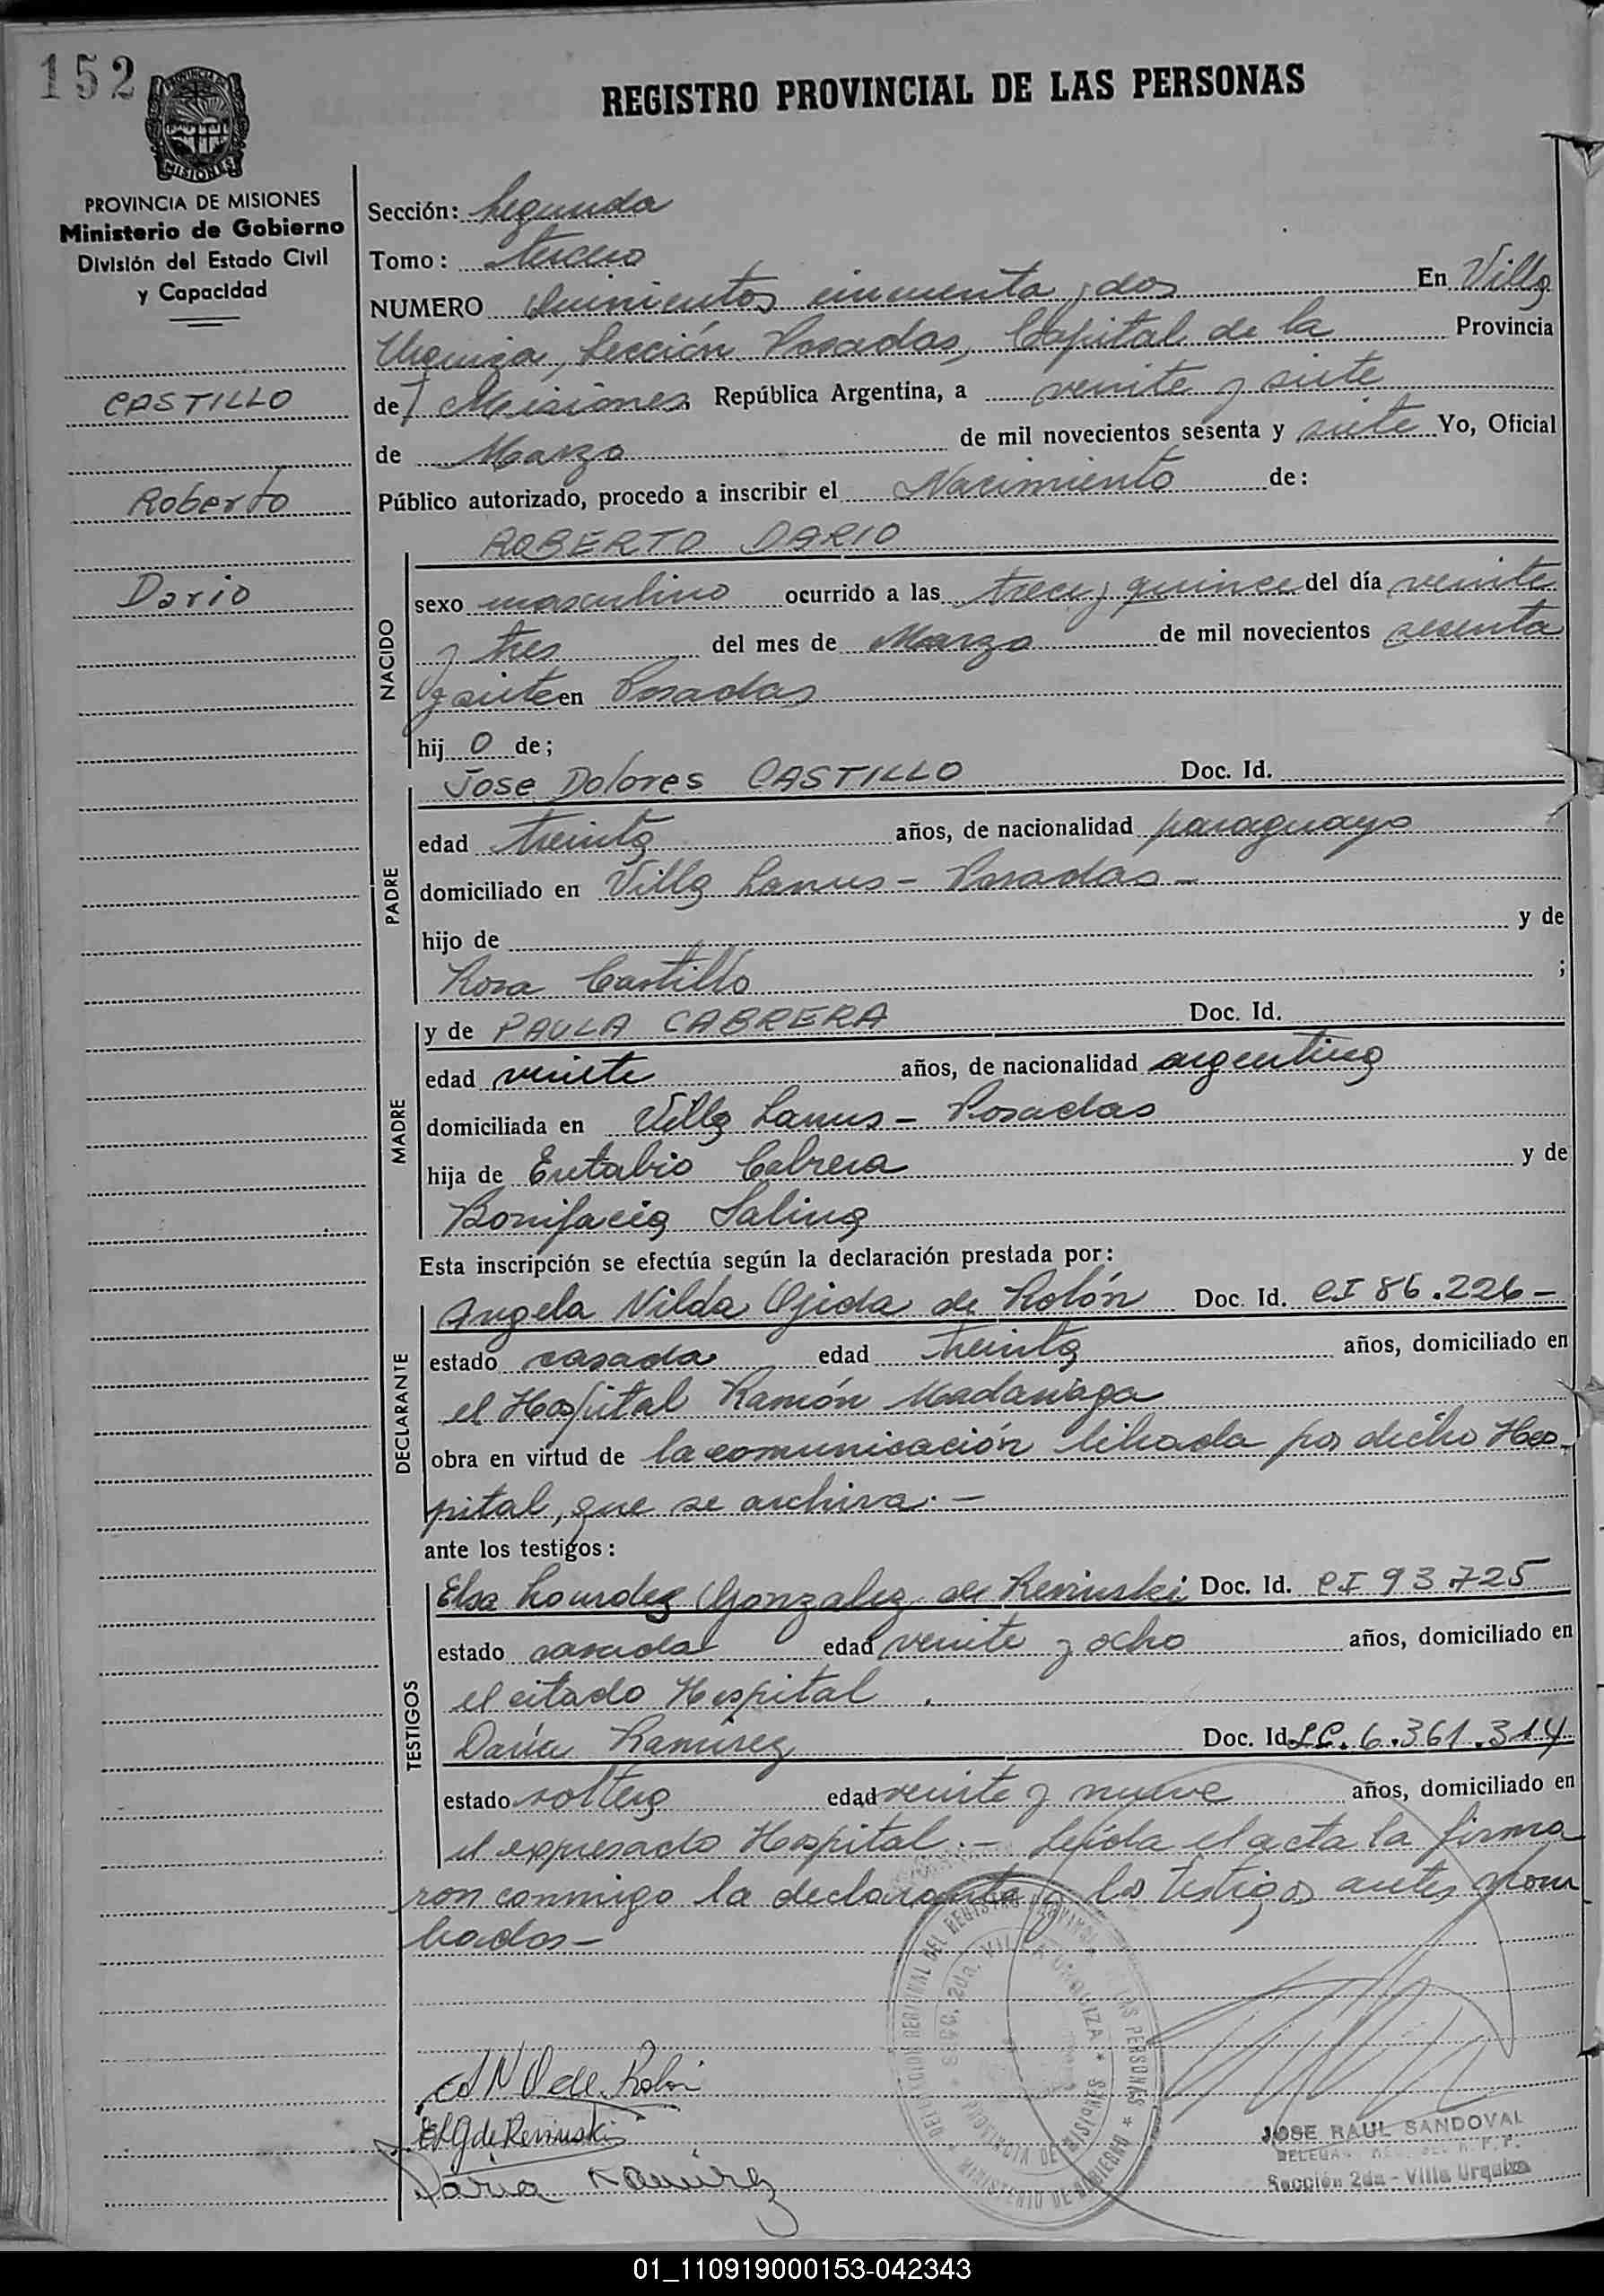 152
REGISTRO PROVINCIAL DE LAS PERSONAS
PROVINCIA DE MISIONES
Ministerio de Gobierno
División del Estado Civil
y Capacidad
CASTILLO
Roberto
Dario
Sección: Segunda
Tomo: tercero
NUMERO Quinientos cincuenta y dos En Villa
Urquiza, Sección Posadas, Capital de la Provincia
de Misiones República Argentina, a veinte y siete
de Marzo de mil novecientos sesenta y siete Yo, Oficial
Público autorizado, procedo a inscribir el Nacimiento de:
ROBERTO DARIO
NACIDO
sexo masculino ocurrido a las trece y quince del día veinte
y tres del mes de Marzo de mil novecientos sesenta
y siete en Posadas
hij o de;
PADRE
Jose Dolores CASTILLO Doc. Id.
edad treinta años, de nacionalidad paraguayo
domiciliado en Villa Lanus - Posadas -
hijo de y de
Rosa Castillo ;
MADRE
y de PAULA CABRERA Doc. Id.
edad veinte años, de nacionalidad argentina
domiciliada en Villa Lanus - Posadas
hija de Eutabio Cabrera y de
Bonifacia Salina
Esta inscripción se efectúa según la declaración prestada por:
DECLARANTE
Angela Nilda Ojeda de Rolón Doc. Id. CI 86.226-
estado casada edad treinta años, domiciliado en
el Hospital Ramón Madariaga
obra en virtud de la comunicación librada por dicho Hos-
pital, que se archiva. -
ante los testigos:
TESTIGOS
Elsa Lourdes Gonzalez de Reninski Doc. Id. CI 93.725
estado casada edad veinte y ocho años, domiciliado en
el citado Hospital .
Daría Ramirez Doc. Id LC. 6.361.314
estado soltera edad veinte y nueve años, domiciliado en
el expresado Hospital. - Leída el acta la firma
ron conmigo la declarante y los testigos antes nom
brados -
Daria Ramirez
DELEGACION DEL REGISTRO PROVINCIAL DE LAS PERSONAS * MINISTERIO DE GOBIERNO
SECC. 2da. VILLA URQUIZA * PROVINCIA DE MISIONES
JOSE RAUL SANDOVAL
Sección 2da - Villa Urquiza
01_110919000153-042343